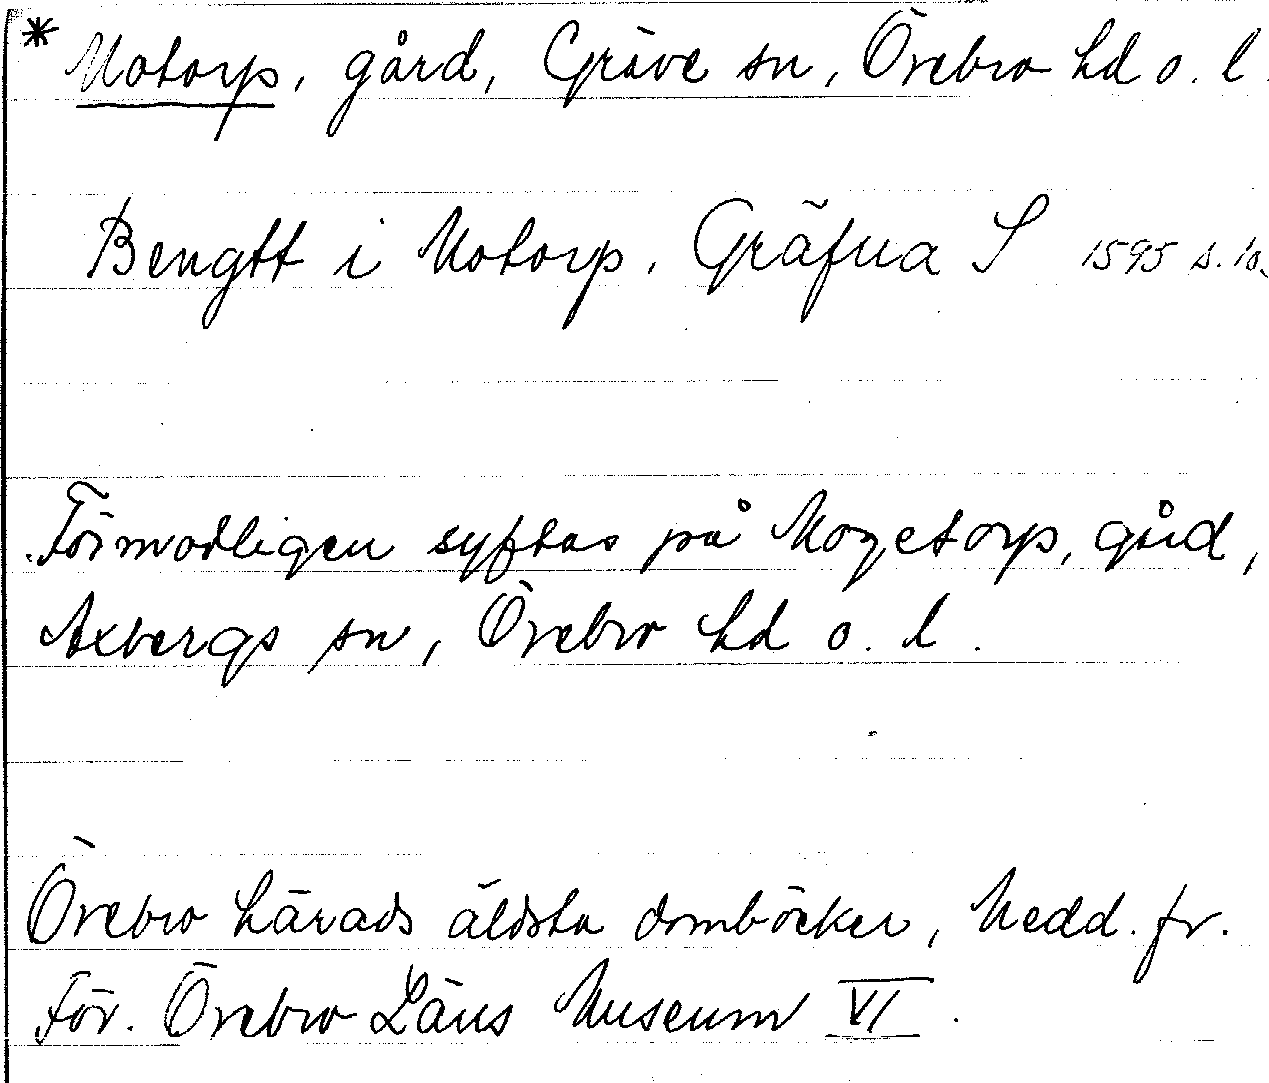 * Motorp, gård, Gräve sn, Örebro hd o. l.
Bengtt i Motorp, Gräfua S 1595 s. 10.
Förmodligen syftas på Mogetorp, gård,
Axbergs sn, Örebro hd o. l.
Örebro härads äldsta domböcker, Medd. fr.
För. Örebro Läns Museum VI.